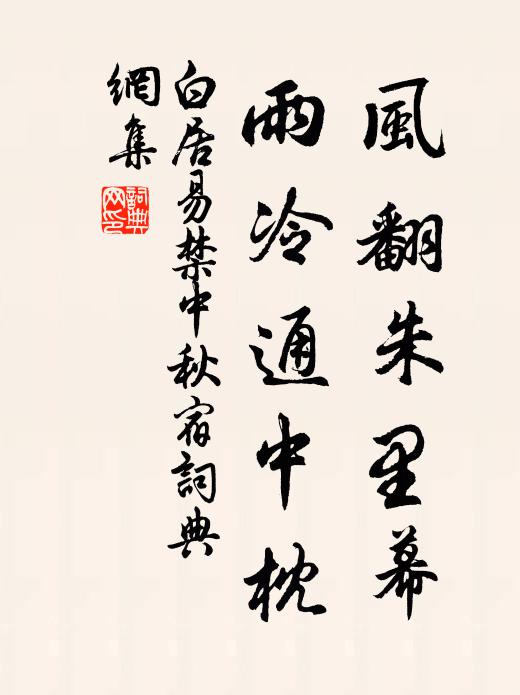 風翻朱里幕
雨冷通中枕
白居易禁中秋宿詞典
網集
詞典网印